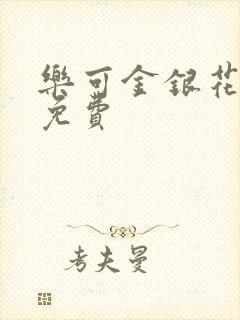 樂可金銀花
免費
考夫曼